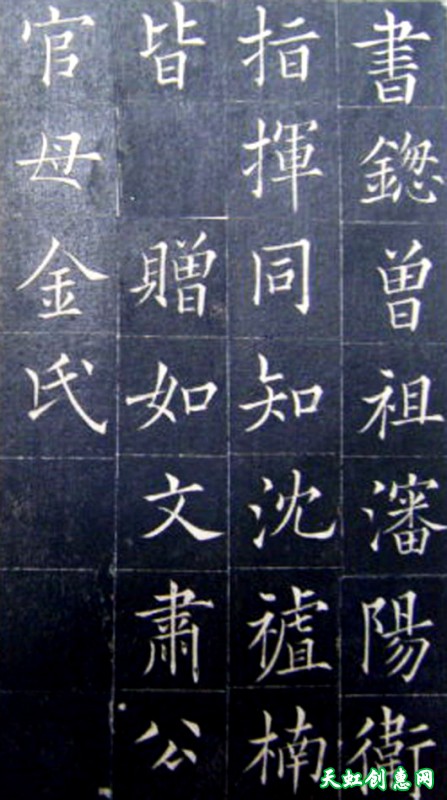 書鍯曽祖瀋陽衛
指揮同知沈禃楠
皆 贈如文肅公
官母金氏
天虹创意网